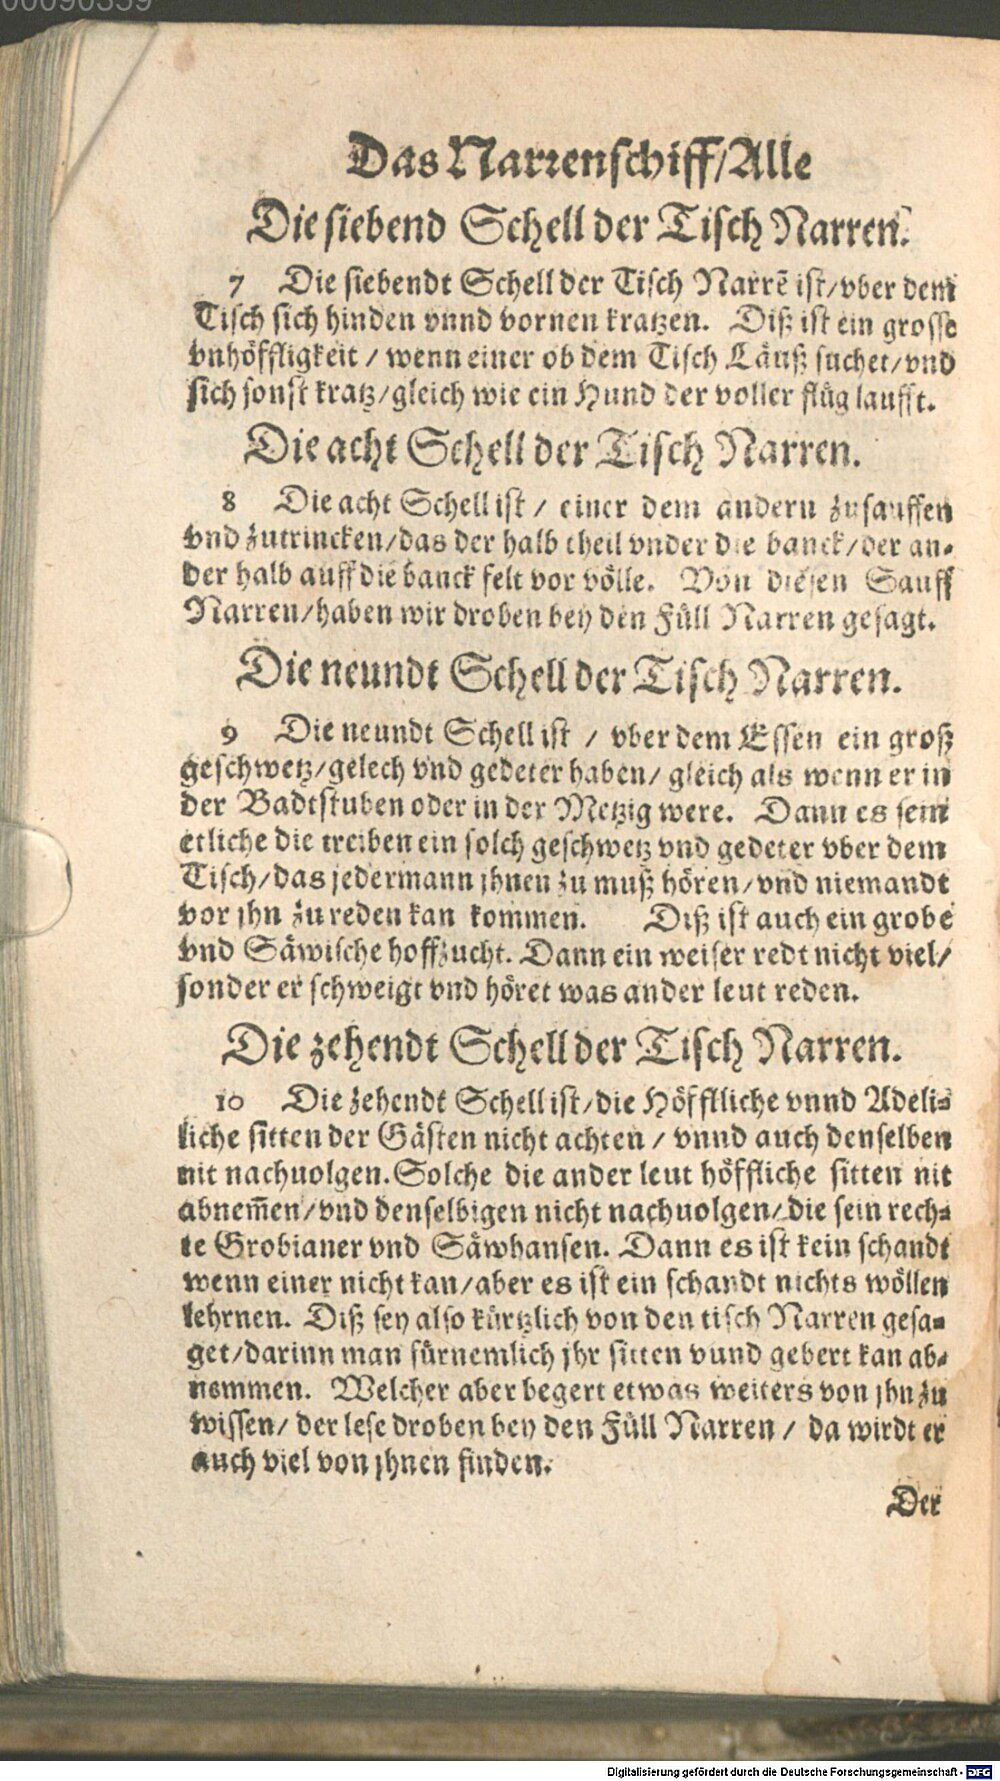 00090359
Das Narrenschiff/Alle
Die siebend Schell der Tisch Narren.
7 Die siebendt Schell der Tisch Narrē ist/vber dem
Tisch sich hinden vnnd vornen kratzen. Diß ist ein grosse
vnhöffligkeit / wenn einer ob dem Tisch Läuß suchet/vnd
sich sonst kratz/gleich wie ein Hund der voller flüg laufft.
Die acht Schell der Tisch Narren.
8 Die acht Schell ist / einer dem andern zusauffen
vnd zutrincken/das der halb theil vnder die banck/der an-
der halb auff die banck felt vor völle. Von diesen Sauff
Narren/haben wir droben bey den Füll Narren gesagt.
Die neundt Schell der Tisch Narren.
9 Die neundt Schell ist / vber dem Essen ein groß
geschwetz/gelech vnd gedeter haben/ gleich als wenn er in
der Badtstuben oder in der Metzig were. Dann es sein
etliche die treiben ein solch geschwetz vnd gedeter vber dem
Tisch/das jedermann jhnen zu muß hören/vnd niemandt
vor jhn zu reden kan kommen. Diß ist auch ein grobe
vnd Säwische hoffzucht. Dann ein weiser redt nicht viel/
sonder er schweigt vnd höret was ander leut reden.
Die zehendt Schell der Tisch Narren.
10 Die zehendt Schell ist/die Höffliche vnnd Adeli-
liche sitten der Gästen nicht achten / vnnd auch denselben
nit nachuolgen. Solche die ander leut höffliche sitten nit
abnem̄en/vnd denselbigen nicht nachuolgen/die sein rech-
te Grobianer vnd Säwhansen. Dann es ist kein schandt
wenn einer nicht kan/aber es ist ein schandt nichts wöllen
lehrnen. Diß sey also kürtzlich von den tisch Narren gesa-
get/darinn man fürnemlich jhr sitten vnnd gebert kan ab-
nemmen. Welcher aber begert etwas weiters von jhn zu
wissen/ der lese droben bey den Füll Narren / da wirdt er
auch viel von jhnen finden.
Der
Digitalisierung gefördert durch die Deutsche Forschungsgemeinschaft - DFG